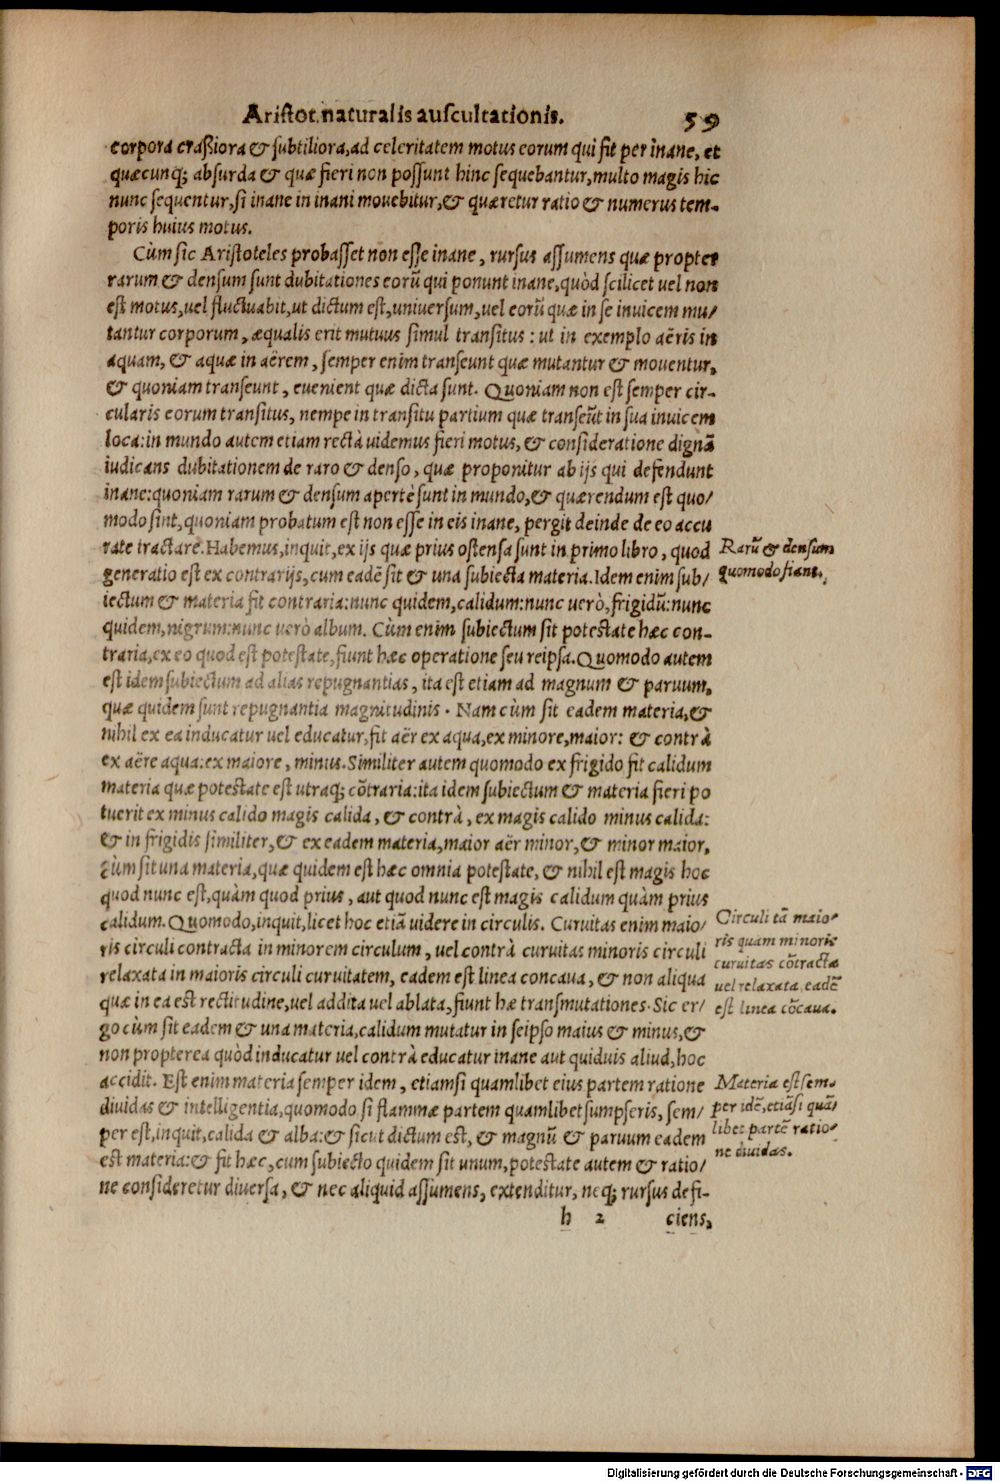 Aristot. naturalis auscultationis. 59
corpora craßiora & subtiliora, ad celeritatem motus eorum qui fit per inane, et
quæcunq; absurda & quæ fieri non possunt hinc sequebantur, multo magis hic
nunc sequentur, si inane in inani mouebitur, & quæretur ratio & numerus tem-
poris huius motus.
Cùm sic Aristoteles probasset non esse inane, rursus assumens quæ propter
rarum & densum sunt dubitationes eorũ qui ponunt inane, quòd scilicet uel non
est motus, uel fluctuabit, ut dictum est, uniuersum, uel eorũ quæ in se inuicem mu/
tantur corporum, æqualis erit mutuus simul transitus: ut in exemplo aëris in
aquam, & aquæ in aërem, semper enim transeunt quæ mutantur & mouentur,
& quoniam transeunt, euenient quæ dicta sunt. Quoniam non est semper cir-
cularis eorum transitus, nempe in transitu partium quæ transeũt in sua inuicem
loca: in mundo autem etiam rectà uidemus fieri motus, & consideratione dignã
iudicans dubitationem de raro & denso, quæ proponitur ab ijs qui defendunt
inane: quoniam rarum & densum apertè sunt in mundo, & quærendum est quo/
modo sint, quoniam probatum est non esse in eis inane, pergit deinde de eo accu
rate tractare. Habemus, inquit, ex ijs quæ prius ostensa sunt in primo libro, quod
generatio est ex contrarijs, cum eadẽ sit & una subiecta materia. Idem enim sub/
iectum & materia fit contraria: nunc quidem, calidum: nunc uerò, frigidũ: nunc
quidem, nigrum: nunc uerò album. Cùm enim subiectum sit potestate hæc con-
traria, ex eo quod est potestate, fiunt hæc operatione seu reipsa. Quomodo autem
est idem subiectum ad alias repugnantias, ita est etiam ad magnum & paruum,
quæ quidem sunt repugnantia magnitudinis. Nam cùm sit eadem materia, &
nihil ex ea inducatur uel educatur, fit aër ex aqua, ex minore, maior: & contrà
ex aëre aqua: ex maiore, minus. Similiter autem quomodo ex frigido fit calidum
materia quæ potestate est utraq; cõtraria: ita idem subiectum & materia fieri po
tuerit ex minus calido magis calida, & contrà, ex magis calido minus calida:
& in frigidis similiter, & ex eadem materia, maior aër minor, & minor maior,
cùm sit una materia, quæ quidem est hæc omnia potestate, & nihil est magis hoc
quod nunc est, quàm quod prius, aut quod nunc est magis calidum quàm prius
calidum. Quomodo, inquit, licet hoc etiã uidere in circulis. Curuitas enim maio/
ris circuli contracta in minorem circulum, uel contrà curuitas minoris circuli
relaxata in maioris circuli curuitatem, eadem est linea concaua, & non aliqua
quæ in ea est rectitudine, uel addita uel ablata, fiunt hæ transmutationes. Sic er/
go cùm sit eadem & una materia, calidum mutatur in seipso maius & minus, &
non propterea quòd inducatur uel contrà educatur inane aut quiduis aliud, hoc
accidit. Est enim materia semper idem, etiamsi quamlibet eius partem ratione
diuidas & intelligentia, quomodo si flammæ partem quamlibet sumpseris, sem/
per est, inquit, calida & alba: & sicut dictum est, & magnũ & paruum eadem
est materia: & fit hæc, cum subiecto quidem sit unum, potestate autem & ratio/
ne consideretur diuersa, & nec aliquid assumens, extenditur, neq; rursus defi-
h 2 ciens,
Rarũ & densum
quomodo fiant.
Circuli tã maio-
ris quam minoris
curuitas cõtracta
uel relaxata, eadẽ
est linea cõcaua.
Materia est sem-
per idẽ, etiãsi quã/
libet partẽ ratio-
ne diuidas.
Digitalisierung gefördert durch die Deutsche Forschungsgemeinschaft - DFG